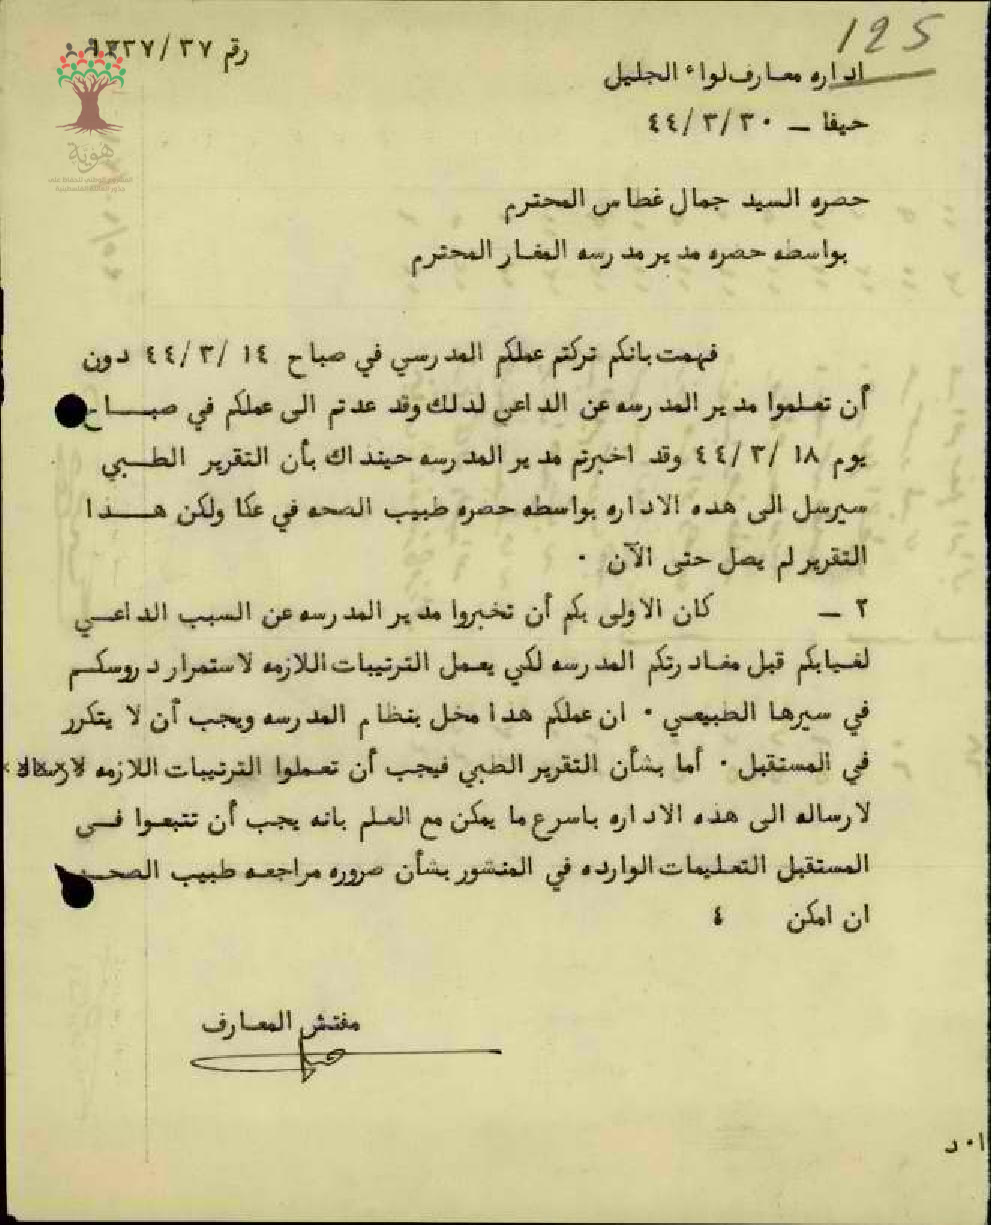 125
رقم ١٣٣٧/٣٧
اداره معارف لواء الجليل
حيفا – ٤٤/٣/٣٠
هوية
المشروع الوطني للحفاظ على
جذور العائلة الفلسطينية
حضره السيد جمال غطاس المحترم
بواسطه حضره مدير مدرسه المغار المحترم
فهمت بانكم تركتم عملكم المدرسي في صباح ٤٤/٣/١٤ دون
أن تعلموا مدير المدرسه عن الداعي لذلك وقد عدتم الى عملكم في صبــــاح
يوم ٤٤/٣/١٨ وقد اخبرتم مدير المدرسه حينذاك بأن التقرير الطــبي
سيرسل الى هذه الاداره بواسطه حضره طبيب الصحه في عكا ولكن هــــذا
التقرير لم يصل حتى الآن ٠
٢ – كان الاولى بكم أن تخبروا مدير المدرسه عن السبب الداعــي
لغيابكم قبل مغادرتكم المدرسه لكي يعمل الترتيبات اللازمه لاستمرار دروسكــم
في سيرها الطبيعي ٠ ان عملكم هذا مخل بنظام المدرسه ويجب أن لا يتكرر
في المستقبل ٠ أما بشأن التقرير الطبي فيجب أن تعملوا الترتيبات اللازمه
لارساله الى هذه الاداره باسرع ما يمكن مع العلم بانه يجب أن تتبعوا فــي
المستقبل التعليمات الوارده في المنشور بشأن ضروره مراجعه طبيب الصحــه
ان امكن ٤
مفتش المعارف
ا٠د